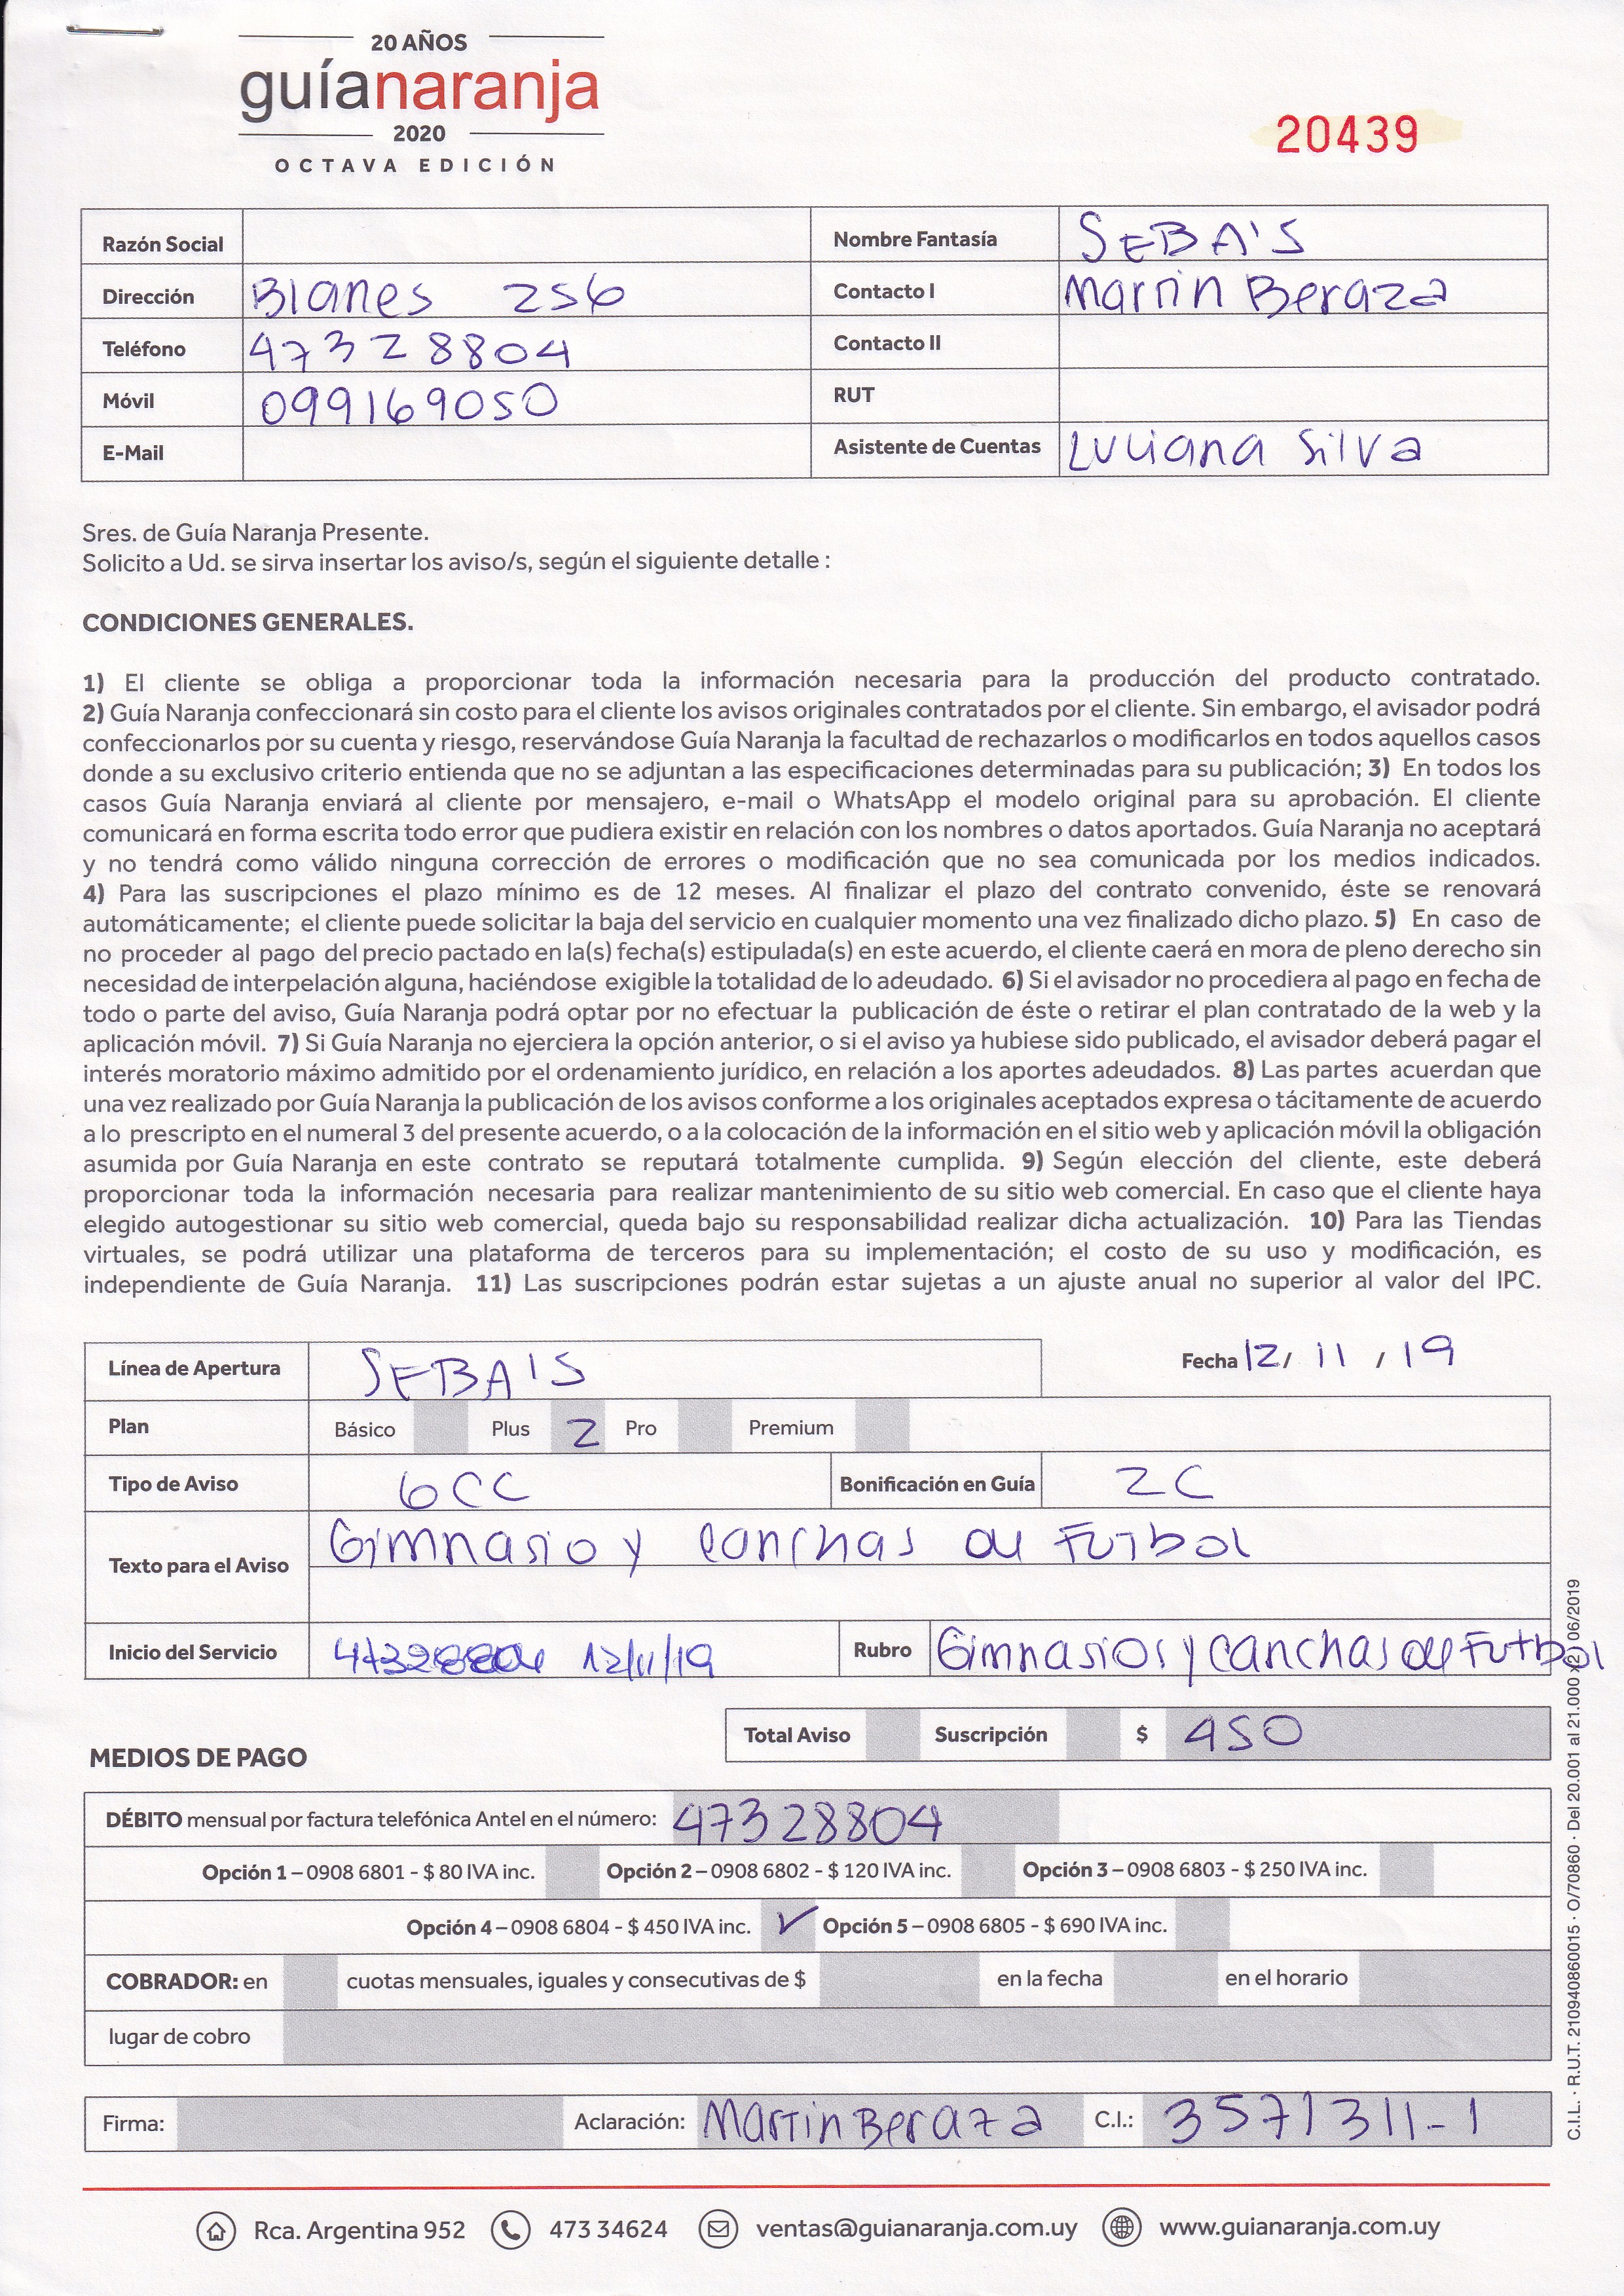 20 AÑOS
guíanaranja
2020
OCTAVA EDICIÓN
20439
Razón Social
Nombre Fantasía SEBA'S
Dirección Blanes 256
Contacto I Martin Beraza
Teléfono 47328804
Contacto II
Móvil 099169050
RUT
E-Mail
Asistente de Cuentas Luliana Silva
Sres. de Guía Naranja Presente.
Solicito a Ud. se sirva insertar los aviso/s, según el siguiente detalle :
CONDICIONES GENERALES.
1) El cliente se obliga a proporcionar toda la información necesaria para la producción del producto contratado.
2) Guía Naranja confeccionará sin costo para el cliente los avisos originales contratados por el cliente. Sin embargo, el avisador podrá
confeccionarlos por su cuenta y riesgo, reservándose Guía Naranja la facultad de rechazarlos o modificarlos en todos aquellos casos
donde a su exclusivo criterio entienda que no se adjuntan a las especificaciones determinadas para su publicación; 3) En todos los
casos Guía Naranja enviará al cliente por mensajero, e-mail o WhatsApp el modelo original para su aprobación. El cliente
comunicará en forma escrita todo error que pudiera existir en relación con los nombres o datos aportados. Guía Naranja no aceptará
y no tendrá como válido ninguna corrección de errores o modificación que no sea comunicada por los medios indicados.
4) Para las suscripciones el plazo mínimo es de 12 meses. Al finalizar el plazo del contrato convenido, éste se renovará
automáticamente; el cliente puede solicitar la baja del servicio en cualquier momento una vez finalizado dicho plazo. 5) En caso de
no proceder al pago del precio pactado en la(s) fecha(s) estipulada(s) en este acuerdo, el cliente caerá en mora de pleno derecho sin
necesidad de interpelación alguna, haciéndose exigible la totalidad de lo adeudado. 6) Si el avisador no procediera al pago en fecha de
todo o parte del aviso, Guía Naranja podrá optar por no efectuar la publicación de éste o retirar el plan contratado de la web y la
aplicación móvil. 7) Si Guía Naranja no ejerciera la opción anterior, o si el aviso ya hubiese sido publicado, el avisador deberá pagar el
interés moratorio máximo admitido por el ordenamiento jurídico, en relación a los aportes adeudados. 8) Las partes acuerdan que
una vez realizado por Guía Naranja la publicación de los avisos conforme a los originales aceptados expresa o tácitamente de acuerdo
a lo prescripto en el numeral 3 del presente acuerdo, o a la colocación de la información en el sitio web y aplicación móvil la obligación
asumida por Guía Naranja en este contrato se reputará totalmente cumplida. 9) Según elección del cliente, este deberá
proporcionar toda la información necesaria para realizar mantenimiento de su sitio web comercial. En caso que el cliente haya
elegido autogestionar su sitio web comercial, queda bajo su responsabilidad realizar dicha actualización. 10) Para las Tiendas
virtuales, se podrá utilizar una plataforma de terceros para su implementación; el costo de su uso y modificación, es
independiente de Guía Naranja. 11) Las suscripciones podrán estar sujetas a un ajuste anual no superior al valor del IPC.
Línea de Apertura SEBA'S
Fecha 12/ 11 / 19
Plan Básico Plus 2 Pro Premium
Tipo de Aviso 6CC Bonificación en Guía 2C
Texto para el Aviso Gimnasio y canchas de Futbol
Inicio del Servicio 12/11/19 Rubro Gimnasios y canchas de Futbol
Total Aviso Suscripción $ 450
MEDIOS DE PAGO
DÉBITO mensual por factura telefónica Antel en el número: 47328804
Opción 1 – 0908 6801 - $ 80 IVA inc. Opción 2 – 0908 6802 - $ 120 IVA inc. Opción 3 – 0908 6803 - $ 250 IVA inc.
Opción 4 – 0908 6804 - $ 450 IVA inc. ✓ Opción 5 – 0908 6805 - $ 690 IVA inc.
COBRADOR: en cuotas mensuales, iguales y consecutivas de $ en la fecha en el horario
lugar de cobro
Firma: Aclaración: Martin Beraza C.I.: 3571311-1
Rca. Argentina 952 473 34624 ventas@guianaranja.com.uy www.guianaranja.com.uy
C.I.L. · R.U.T. 210940860015 · O/70860 · Del 20.001 al 21.000 x2 06/2019